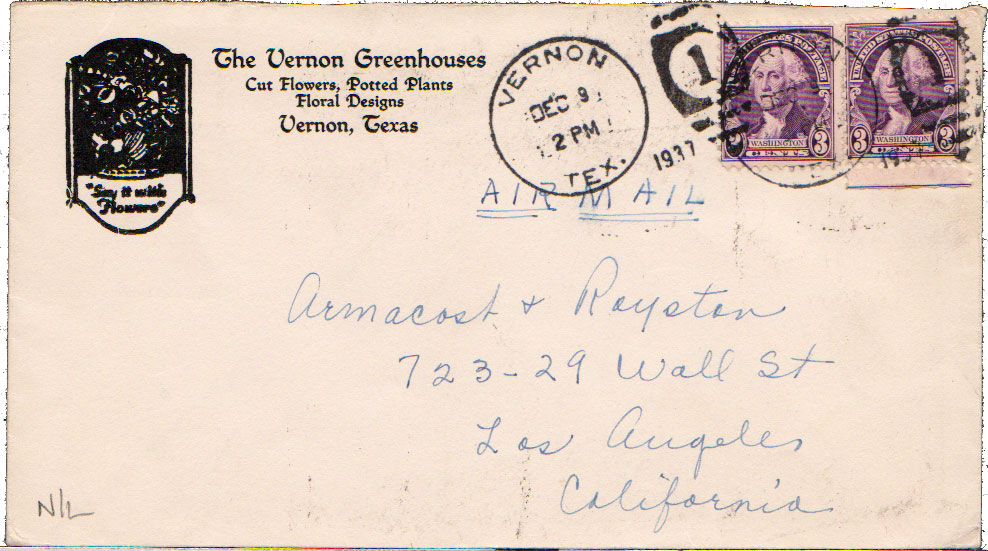 The Vernon Greenhouses
Cut Flowers, Potted Plants
Floral Designs
Vernon, Texas
"Say it with
Flowers"
VERNON
DEC 9
2 PM
1937
TEX.
1
UNITED STATES POSTAGE
3 WASHINGTON 3
3 WASHINGTON 3
193
AIR MAIL
Armacost & Royston
723-29 Wall St
Los Angeles
California
N/L